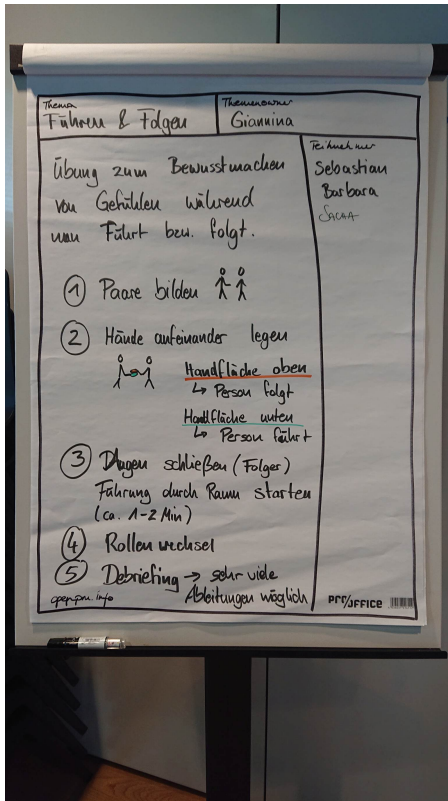 Thema
Führen & Folgen
Themenowner
Giannina
Teilnehmer
Sebastian
Barbara
SACHA
Übung zum Bewusstmachen
von Gefühlen während
man Führt bzw. folgt.
1 Paare bilden
2 Hände aufeinander legen
Handfläche oben
↳ Person folgt
Handfläche unten
↳ Person führt
3 Augen schließen (Folger)
Führung durch Raum starten
(ca. 1-2 Min)
4 Rollenwechsel
5 Debriefing → sehr viele
Ableitungen möglich
openpm.info